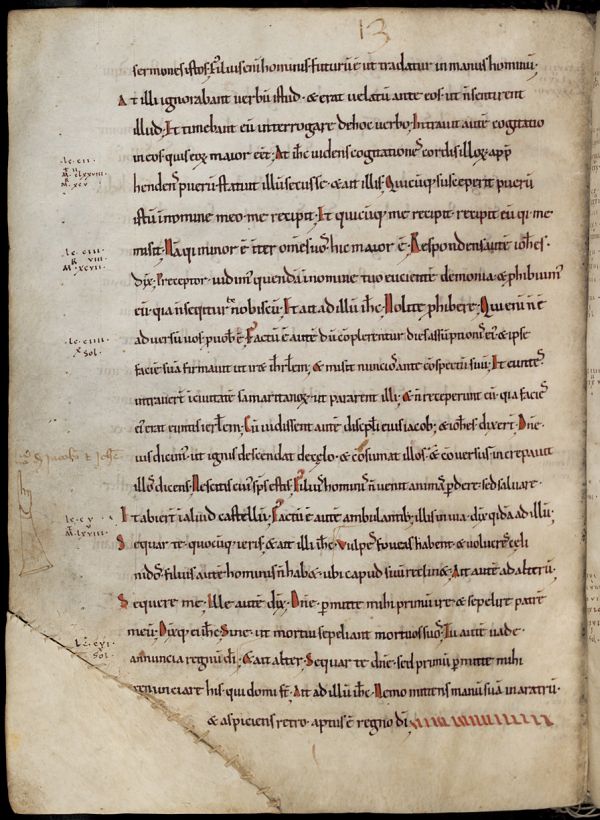 13
sermones istos. Filius eni hominis futurū ē ut tradatur in manus hominū.
At illi ignorabant uerbū istud. & erat uelatū ante eos. ut n̄ sentirent
illud. Et timebant eū interrogare de hoc uerbo. Intrauit autē cogitatio
in eos quis eoꝝ maior eēt. At ihc̄ uidens cogitationes cordis illoꝝ. app̄
hendens puerū statuit illū secus se. & ait illis. Quicūq; susceperit puerū
istū in nomine meo. me recipit. Et quicūq; me recipit. recipit eū qi me
misit. Nā qi minor ē int̄ om̄es uos. hic maior ē. Respondens autē ioh̄es.
dix̄. Preceptor. uidimus quendā in nomine tuo eicientē demonia. & ꝓhibuimus
eū. qia n̄ seqitur nobiscū. Et ait ad illū ihc̄. Nolite ꝓhibere. Qui eni n̄ ē
aduersū uos. ꝓ uob̄ ē. Factū ē autē dū cōplerentur dies assūptionis ei. & ipse
faciē suā firmauit ut iret ihrl̄em. & misit nuncios ante cōspectū suū. Et euntes
intrauert̄ i ciuitatē samaritanoꝝ. ut pararent illi. & n̄ receperunt eū. qia facies
ei erat euntis ierl̄em. Cū uidissent autē discipl̄i eius iacob; & ioh̄es. dixert̄. Dn̄e.
uis dicimus. ut ignis descendat de celo. & cōsumat illos. & cōuersus increpauit
illos dicens. Nescitis cuius sp̄s estis. Filius hominis n̄ uenit animas ꝑdere. sed saluare.
Et abiert̄ i aliud castellū. Factū ē autē ambulantib; illis in uia. dix̄ qidā ad illū.
Sequar te. quocūq; ieris. & ait illi ihc̄. Vulpes foueas habent. & uolucres celi
nidos. filius autē hominis n̄ habet ubi capud suū reclinet. Ait autē ad alterū.
Sequere me. Ille autē dix̄. Dn̄e. ꝑmitte mihi primū ire & sepelire patrē
meū. Dixq; ei ihc̄. Sine. ut mortui sepeliant mortuos suos. Tu autē uade.
annuncia regnū dī. & ait alter. Sequar te dn̄e. sed primū ꝑmitte mihi
renunciare his. qui domi sē. Ait ad illū ihc̄. Nemo mittens manū suā in aratrū.
& aspiciens retro. aptus ē regno dī.
.lc. cii.
M. clxxviii.
M. xcv
.lc. ciii.
viii.
M. xcvii.
.lc. ciiii.
sol.
lc. cv
M. lxviii.
lc. cvi.
sol.